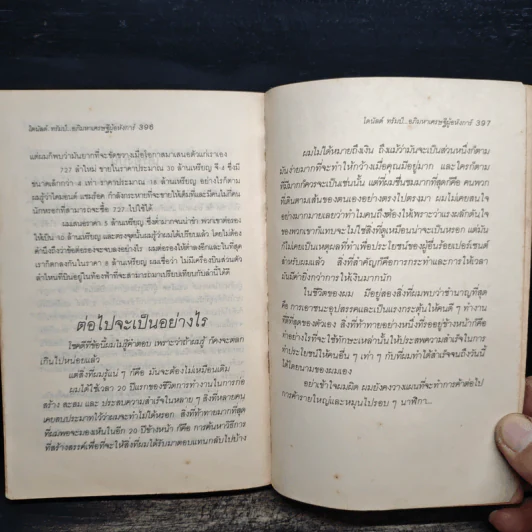 โดนัลด์ ทรัมป์...อภิมหาเศรษฐีผู้อหังการ์ 396
แต่ผมก็พบว่ามันยากที่จะขัดขวางเมื่อโอกาสมาเสนอตัวแก่เราเอง
727 ลำใหม่ ขายในราคาประมาณ 30 ล้านเหรียญ จี-4 ซึ่งมี
ขนาดเล็กกว่า 4 เท่า ราคาประมาณ 18 ล้านเหรียญ อย่างไรก็ตาม
ผมรู้ว่าไดมอนด์ แชมร็อค กำลังกระหายที่จะขายให้ได้ และมีคนไม่กี่คน
นักหรอกที่สามารถจะซื้อ 727 ไปใช้ได้
ผมเสนอราคา 5 ล้านเหรียญ ซึ่งต่ำมากจนน่าขำ พวกเขาต่อรอง
ให้เป็น 10 ล้านเหรียญ และตรงจุดนั้นผมรู้ว่าผมได้เปรียบแล้ว โดยไม่ต้อง
คำนึงถึงว่าข้อต่อรองจะจบลงอย่างไร ผมต่อรองให้ต่ำลงอีกและในที่สุด
เราก็ตกลงกันในราคา 8 ล้านเหรียญ ผมเชื่อว่า ไม่มีเครื่องบินส่วนตัว
ลำไหนที่บินอยู่ในท้องฟ้าที่จะสามารถมาเปรียบเทียบกับลำนี้ได้ดี
ต่อไปจะเป็นอย่างไร
โชคดีที่ข้อนี้ผมไม่รู้คำตอบ เพราะว่าถ้าผมรู้ ก็คงจะตลก
เกินไปหน่อยแล้ว
แต่สิ่งที่ผมรู้แน่ ๆ ก็คือ มันจะต้องไม่เหมือนเดิม
ผมได้ใช้เวลา 20 ปีแรกของชีวิตการทำงานในการก่อ
สร้าง สะสม และ ประสบความสำเร็จในหลาย ๆ สิ่งที่หลายคน
เคยสบประมาทไว้ว่าผมจะทำไม่ได้หรอก สิ่งที่ท้าทายมากที่สุด
ที่ผมพอจะมองเห็นในอีก 20 ปีข้างหน้า ก็คือ การค้นหาวิธีการ
ที่สร้างสรรค์เพื่อที่จะให้สิ่งที่ผมได้รับมาตอบแทนกลับไปบ้าง
โดนัลด์ ทรัมป์...อภิมหาเศรษฐีผู้อหังการ์ 397
ผมไม่ได้หมายถึงเงิน ถึงแม้ว่ามันจะเป็นส่วนหนึ่งก็ตาม
มันง่ายมากที่จะทำให้กว้างเมื่อคุณมีอยู่มาก และใครก็ตาม
ที่มีมากก็ควรจะเป็นเช่นนั้น แต่ที่ผมชื่นชมมากที่สุดก็คือ คนพวก
ที่เดินตามเส้นของตนเองอย่างตรงไปตรงมา ผมไม่เคยสนใจ
อย่างมากมายเลยว่าทำไมคนถึงต้องให้เพราะว่าแรงผลักดันใจ
ของพวกเขาแทบจะไม่ใช่สิ่งที่ดูเหมือนน่าจะเป็นหรอก แต่มัน
ก็ไม่เคยเป็นเหตุผลที่ทำเพื่อประโยชน์ของผู้อื่นร้อยเปอร์เซนต์
สำหรับผมแล้ว สิ่งที่สำคัญก็คือการกระทำและการให้เวลา
มันมีค่ายิ่งกว่าการให้เงินมากนัก
ในชีวิตของผม มีอยู่สองสิ่งที่ผมพบว่าชำนาญที่สุด
คือการเอาชนะอุปสรรคและเป็นแรงกระตุ้นให้คนดี ๆ ทำงาน
ที่ดีที่สุดของตัวเอง สิ่งที่ท้าทายอย่างหนึ่งที่รออยู่ข้างหน้าก็คือ
ทำอย่างไรที่จะใช้ทักษะเหล่านั้นให้ประสพความสำเร็จในการ
ทำประโยชน์ให้คนอื่น ๆ เท่า ๆ กับที่ผมทำได้สำเร็จจนถึงวันนี้
ได้โดยนามของผมเอง
อย่าเข้าใจผมผิด ผมยังคงวางแผนที่จะทำการค้าต่อไป
การค้ารายใหญ่และหมุนไปรอบ ๆ นาฬิกา...